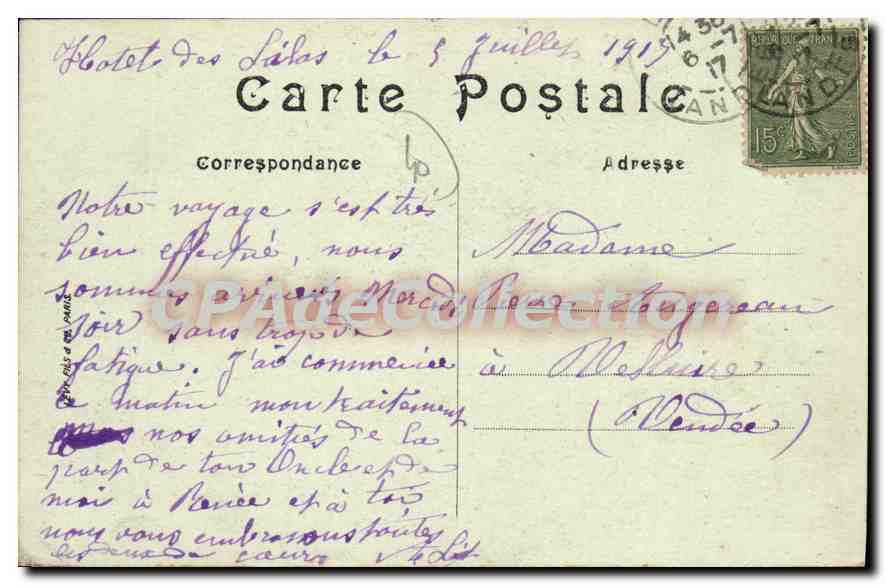 Hotel des Lilas le 5 Juillet 1917
Carte Postale
Correspondance
Adresse
Notre voyage s'est très
bien effectué, nous
sommes arrivés Mercredi
soir sans trop de
fatigue. J'ai commencé
ce matin mon traitement
nos amitiés de la
part de ton Oncle et de
moi à Renée et à toi
nous vous embrassons toutes
les deux de cœur
Madame
Augereau
à Velluire
(Vendée)
LEVY FILS & Cie PARIS
14 30
6 - 7
17
LANDES
REPUBLIQUE FRANÇAISE
15c
POSTES
LP
CPAdeCollection